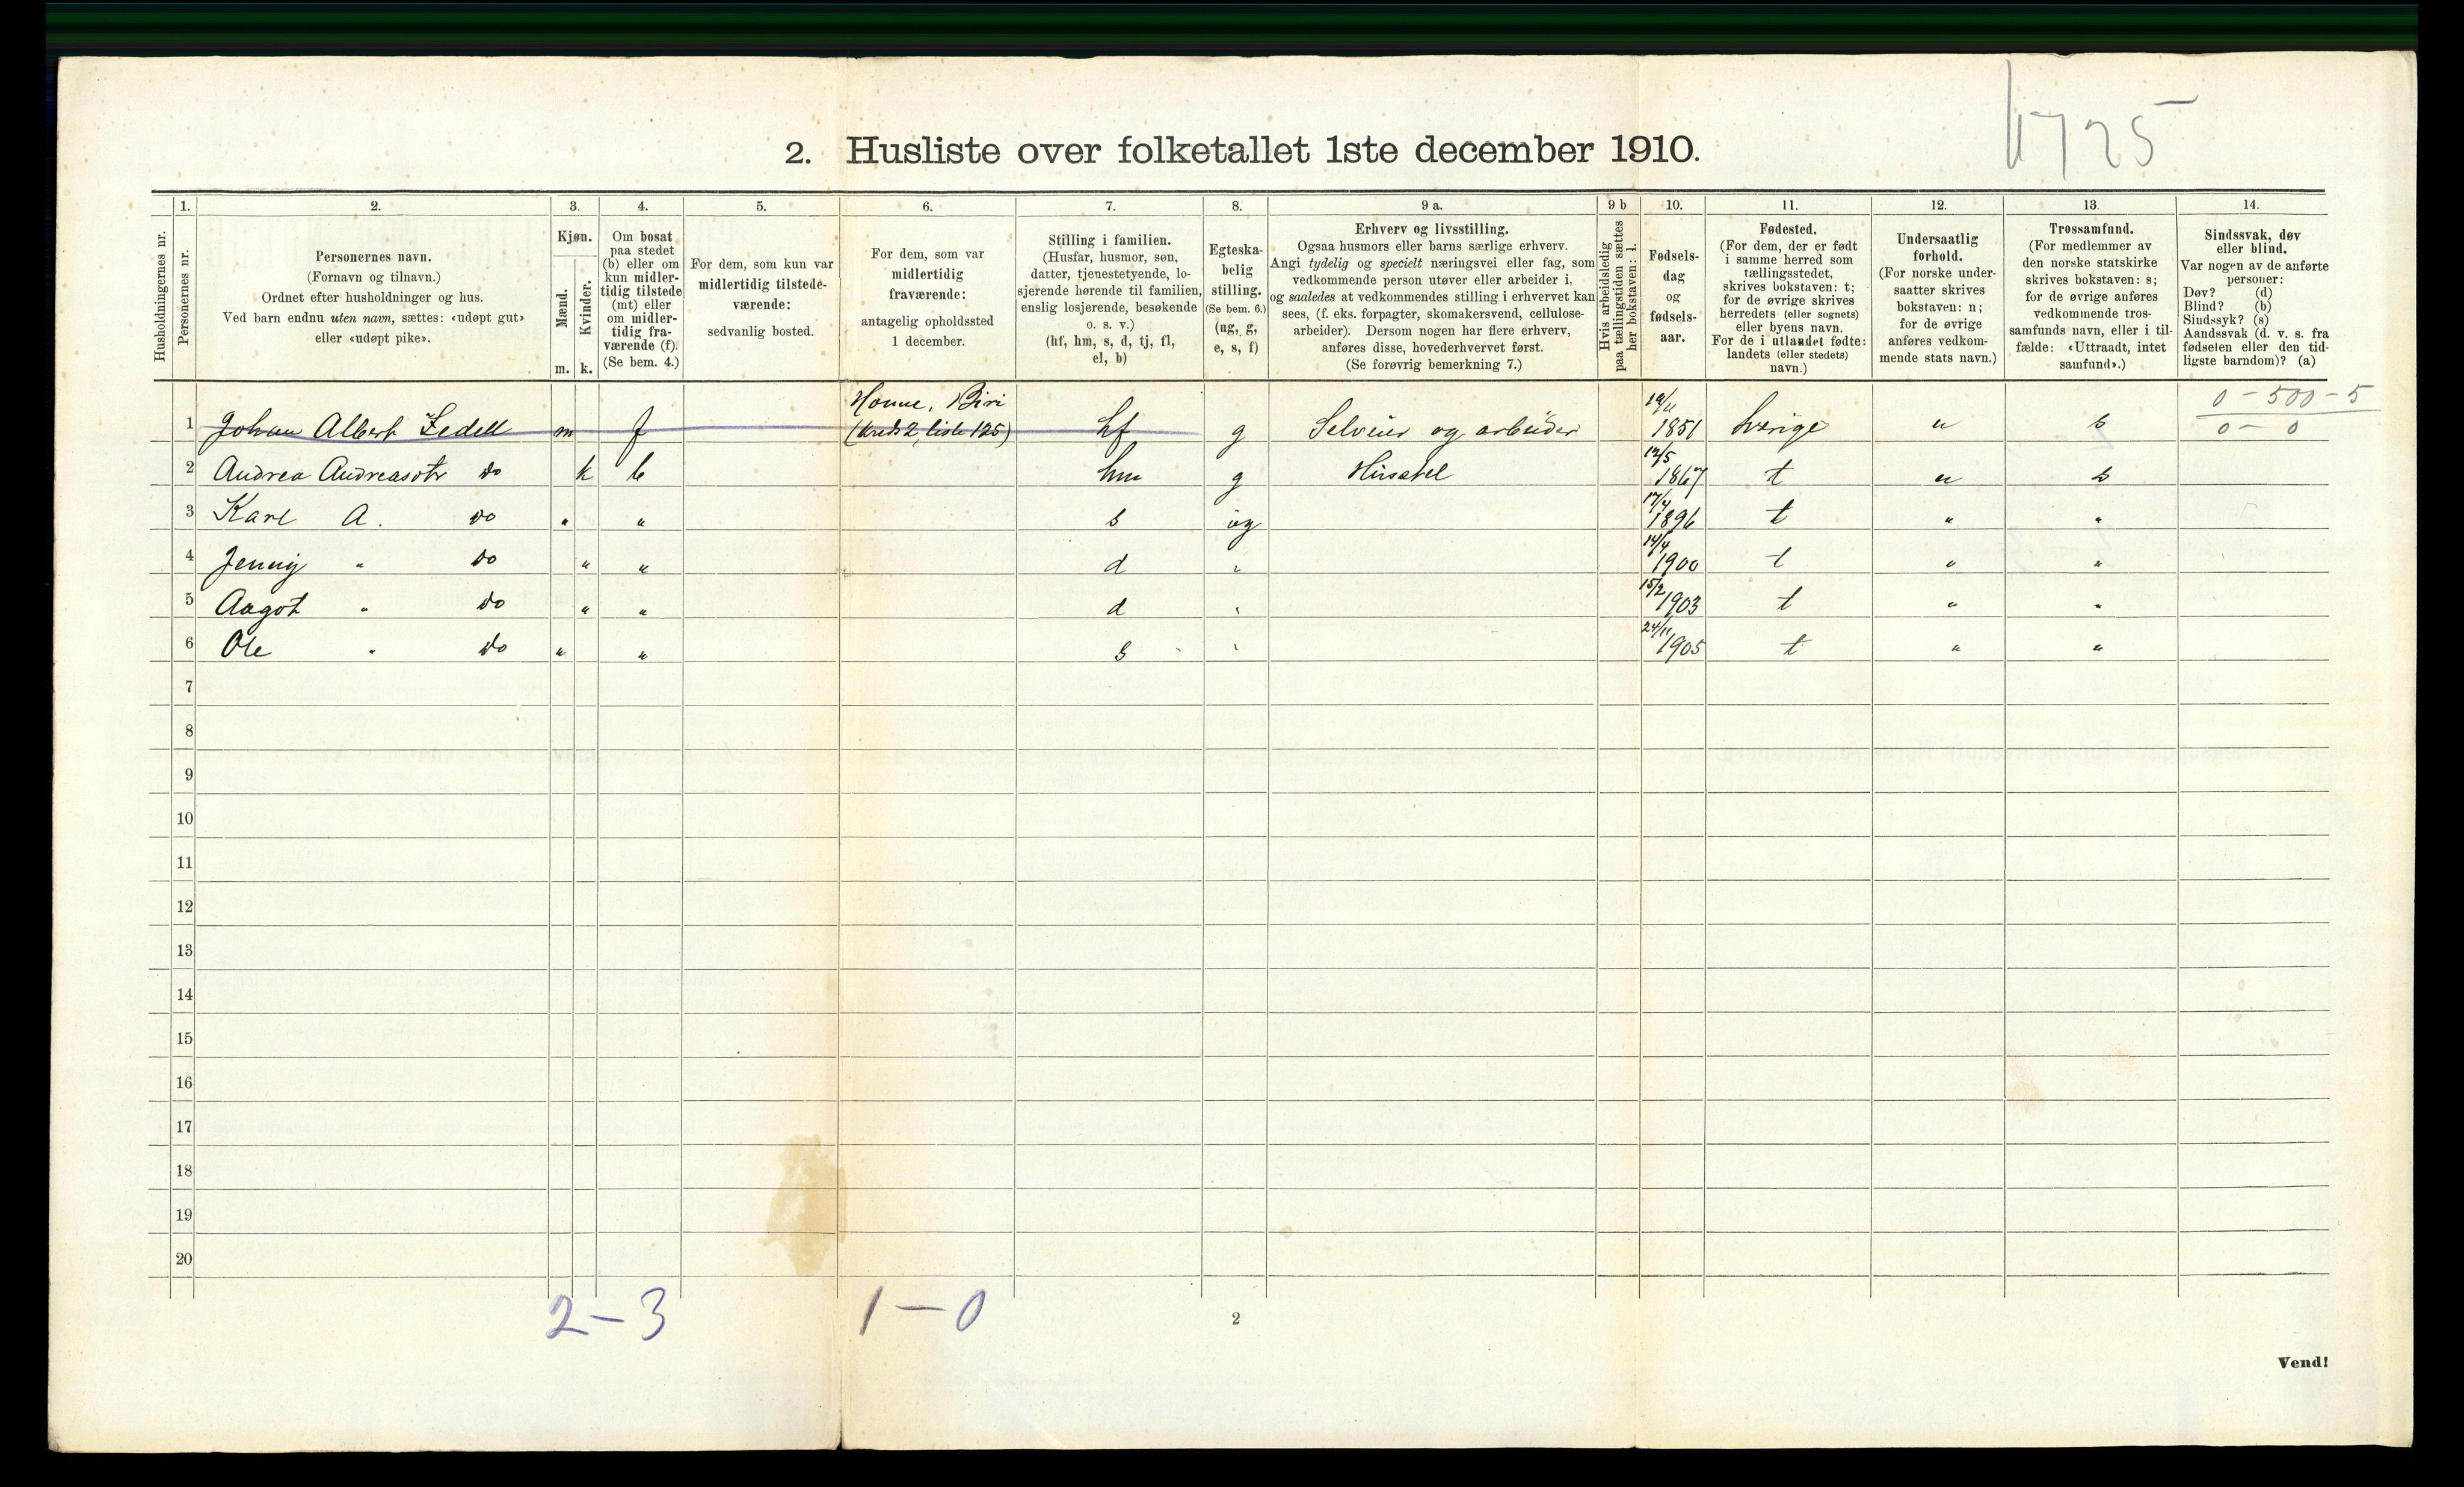 1725
2. Husliste over folketallet 1ste december 1910.
Husholdningernes nr.
1.
Personernes nr.
2.
Personernes navn.
(Fornavn og tilnavn.)
Ordnet efter husholdninger og hus.
Ved barn endnu uten navn, sættes: «udøpt gut»
eller «udøpt pike».
3.
Kjøn.
Mænd.
m.
Kvinder.
k.
4.
Om bosat
paa stedet
(b) eller om
kun midler-
tidig tilstede
(mt) eller
om midler-
tidig fra-
værende (f).
(Se bem. 4.)
5.
For dem, som kun var
midlertidig tilstede-
værende:
sedvanlig bosted.
6.
For dem, som var
midlertidig
fraværende:
antagelig opholdssted
1 december.
7.
Stilling i familien.
(Husfar, husmor, søn,
datter, tjenestetyende, lo-
sjerende hørende til familien,
enslig losjerende, besøkende
o. s. v.)
(hf, hm, s, d, tj, fl,
el, b)
8.
Egteska-
belig
stilling.
(Se bem. 6.)
(ug, g,
e, s, f)
9 a.
Erhverv og livsstilling.
Ogsaa husmors eller barns særlige erhverv.
Angi tydelig og specielt næringsvei eller fag, som
vedkommende person utøver eller arbeider i,
og saaledes at vedkommendes stilling i erhvervet kan
sees, (f. eks. forpagter, skomakersvend, cellulose-
arbeider). Dersom nogen har flere erhverv,
anføres disse, hovederhvervet først.
(Se forøvrig bemerkning 7.)
9 b
Hvis arbeidsledig
paa tællingstiden sættes
her bokstaven: l.
10.
Fødsels-
dag
og
fødsels-
aar.
11.
Fødested.
(For dem, der er født
i samme herred som
tællingsstedet,
skrives bokstaven: t;
for de øvrige skrives
herredets (eller sognets)
eller byens navn.
For de i utlandet fødte:
landets (eller stedets)
navn.)
12.
Undersaatlig
forhold.
(For norske under-
saatter skrives
bokstaven: n;
for de øvrige
anføres vedkom-
mende stats navn.)
13.
Trossamfund.
(For medlemmer av
den norske statskirke
skrives bokstaven: s;
for de øvrige anføres
vedkommende tros-
samfunds navn, eller i til-
fælde: «Uttraadt, intet
samfund».)
14.
Sindssvak, døv
eller blind.
Var nogen av de anførte
personer:
Døv? (d)
Blind? (b)
Sindssyk? (s)
Aandssvak (d. v. s. fra
fødselen eller den tid-
ligste barndom)? (a)
Honne, Biri 0 - 500 - 5
1 Johan Albert Zedell m f (Kreds 2, liste 125) hf g Selveier og arbeider 1851 Sverige n s 0 - 0
2 Andrea Andreasdtr do k b hm g Husstel 12/5 1867 t n s
3 Karl A. do " " s ug 17/4 1896 t " "
4 Jenny " do " " d " 14/4 1900 t " "
5 Aagot " do " " d " 15/2 1903 t " "
6 Ole " do " " s " 24/11 1905 t " "
7
8
9
10
11
12
13
14
15
16
17
18
19
20
2 - 3 1 - 0
2
Vend!